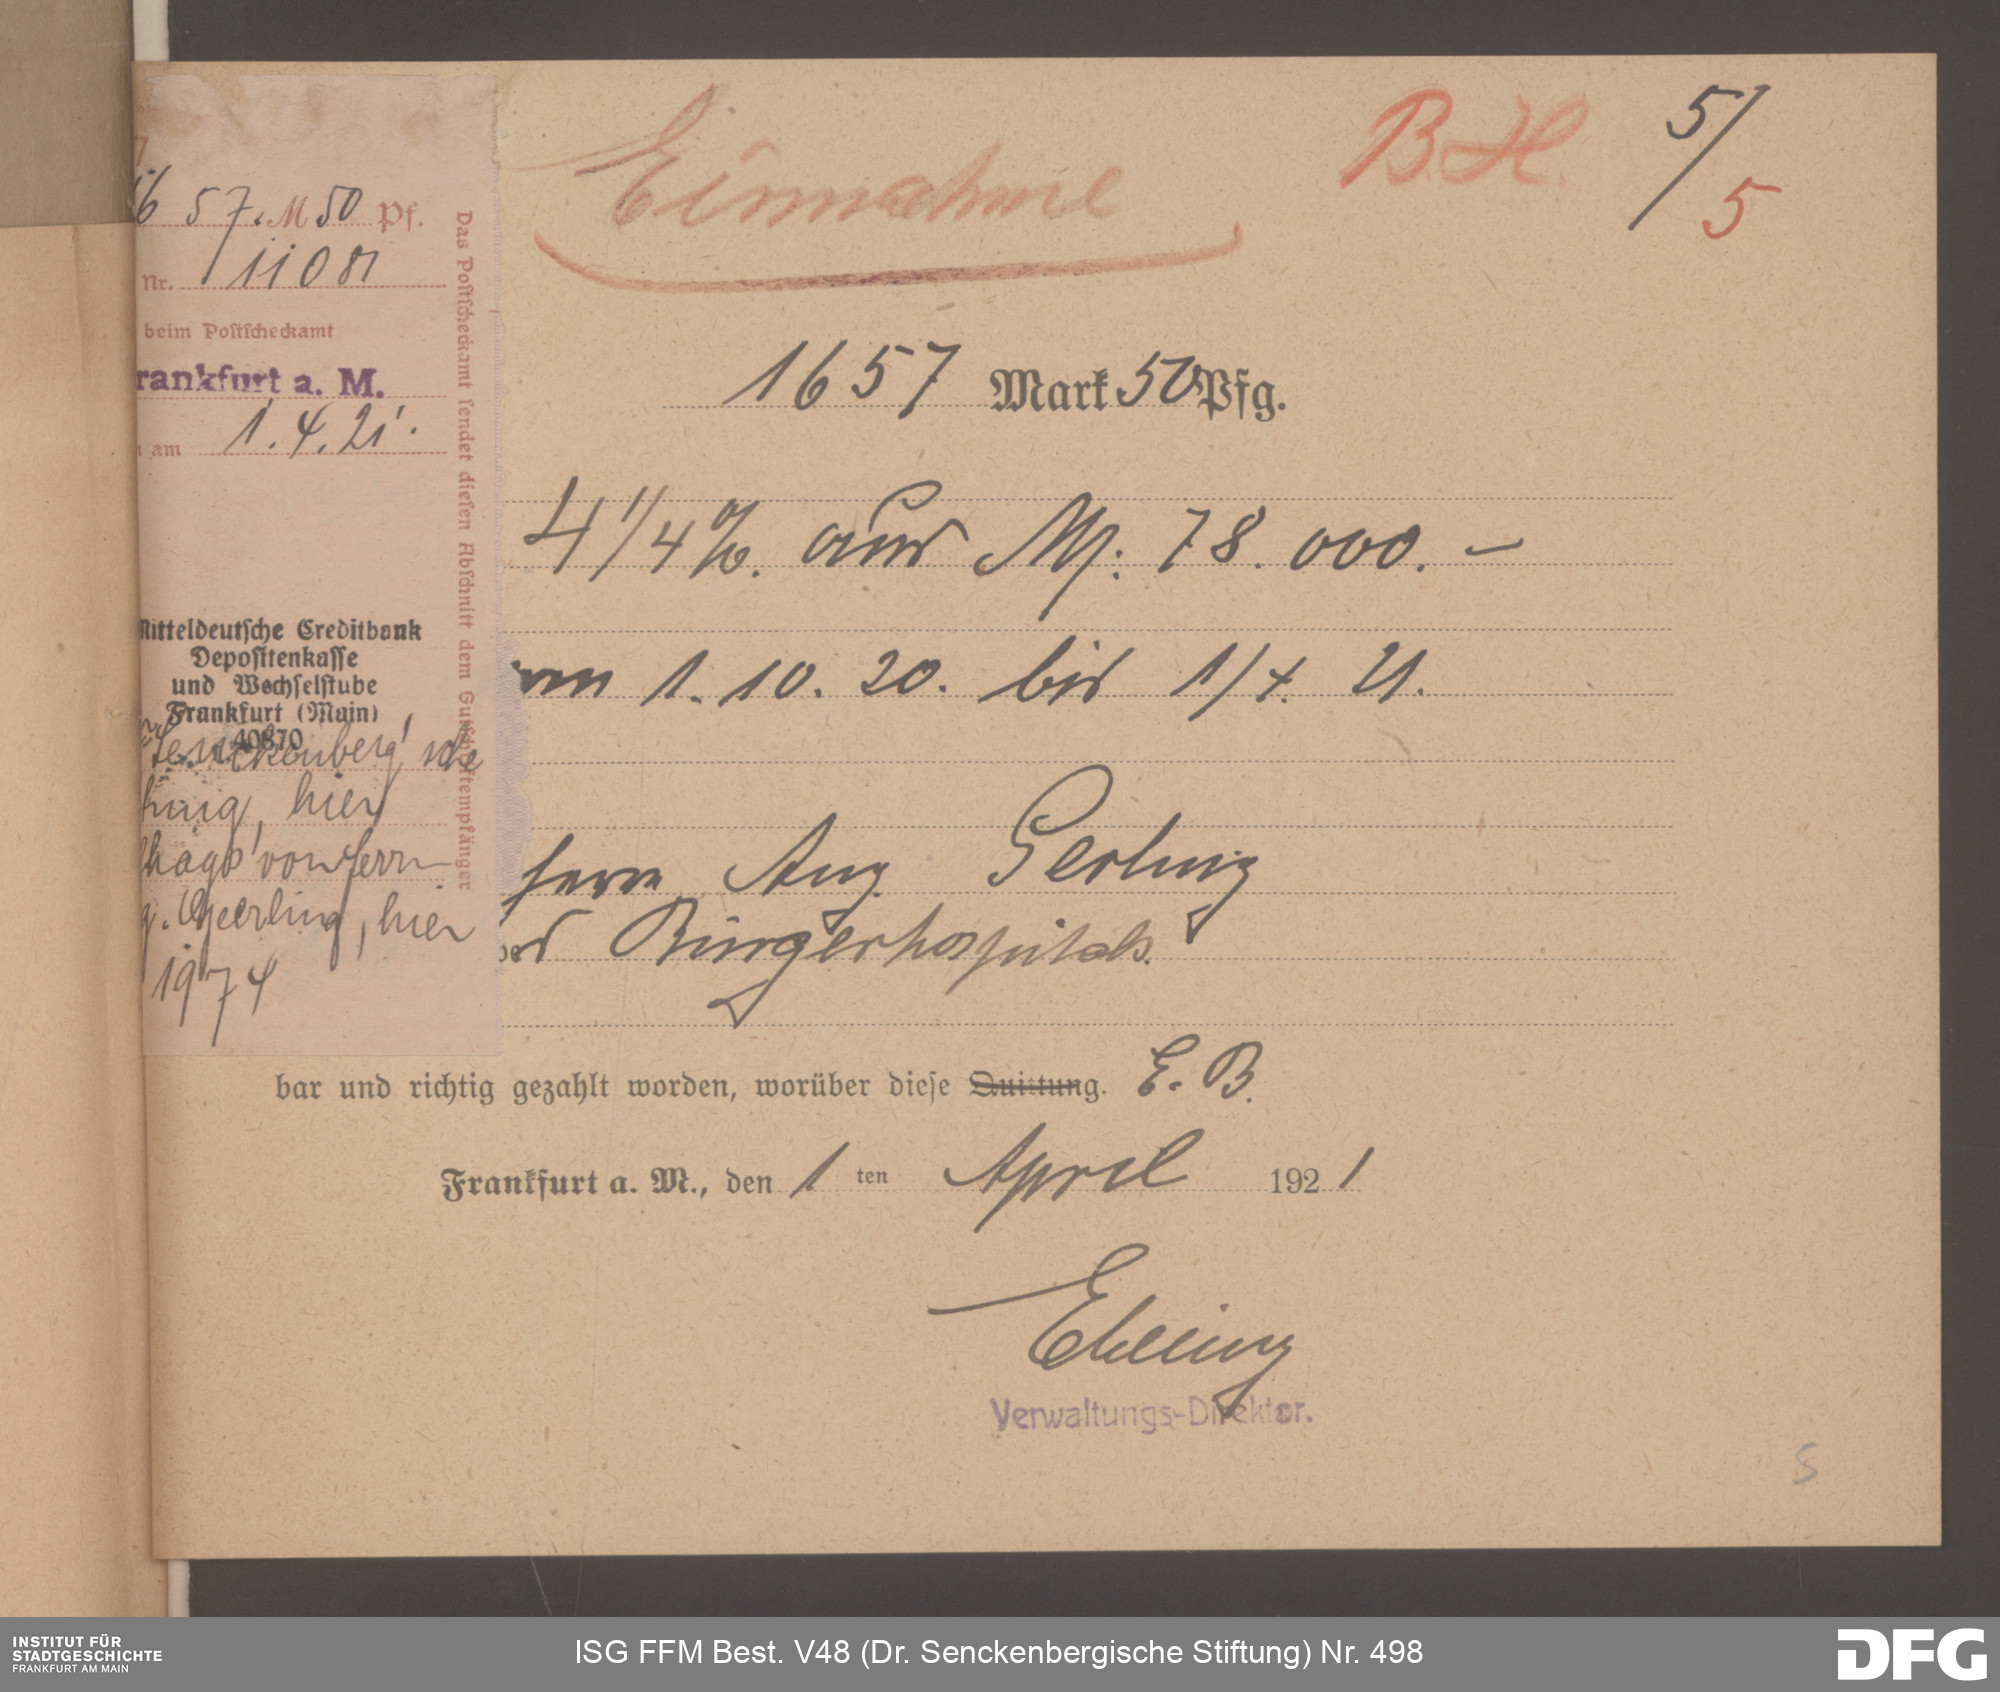 Einnahme
B. H.
5/5
1657 Mark 50 Pfg.
4 1/4 %. aus M. 78.000.–
vom 1.10.20. bis 1/4. 21.
Herrn Aug. Gerling
des Bürgerhospitals.
bar und richtig gezahlt worden, worüber diese Quittung. E. B.
Frankfurt a. M., den 1 ten April 1921
Ebeling
Verwaltungs-Direktor.
5
57. M 50 Pf.
Nr. 11081
beim Postscheckamt
rankfurt a. M.
am 1.4.21.
Mitteldeutsche Creditbank
Depositenkasse
und Wechselstube
Frankfurt (Main)
40870
Senckenberg'sche
tung, hier
von Herrn
g. Geerling, hier
1974
Das Postscheckamt sendet diesen Abschnitt dem Gutschriftempfänger
INSTITUT FÜR
STADTGESCHICHTE
FRANKFURT AM MAIN
ISG FFM Best. V48 (Dr. Senckenbergische Stiftung) Nr. 498
DFG